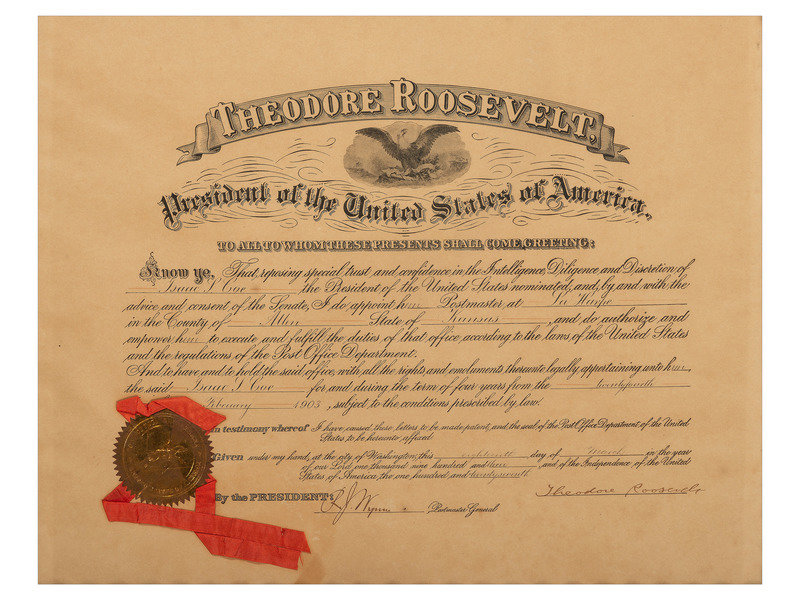 THEODORE ROOSEVELT,
President of the United States of America.
TO ALL TO WHOM THESE PRESENTS SHALL COME, GREETING:
Know ye, That reposing special trust and confidence in the Intelligence, Diligence and Discretion of
Coe the President of the United States nominated, and, by and with the
advice and consent of the Senate, I do appoint him Postmaster at La Harpe
in the County of Allen State of Kansas, and do authorize and
empower him to execute and fulfill the duties of that office according to the laws of the United States
and the regulations of the Post Office Department.
And to have and to hold the said office, with all the rights and emoluments thereunto legally appertaining unto him,
the said Coe for and during the term of four years from the
February 1903, subject to the conditions prescribed by law.
In testimony whereof I have caused these letters to be made patent, and the seal of the Post Office Department of the United
States to be hereunto affixed
Given under my hand, at the city of Washington, this day of March in the year
of our Lord one thousand nine hundred and, and of the Independence of the United
States of America, the one hundred and
By the PRESIDENT:
R J Wynne, Postmaster General
Theodore Roosevelt